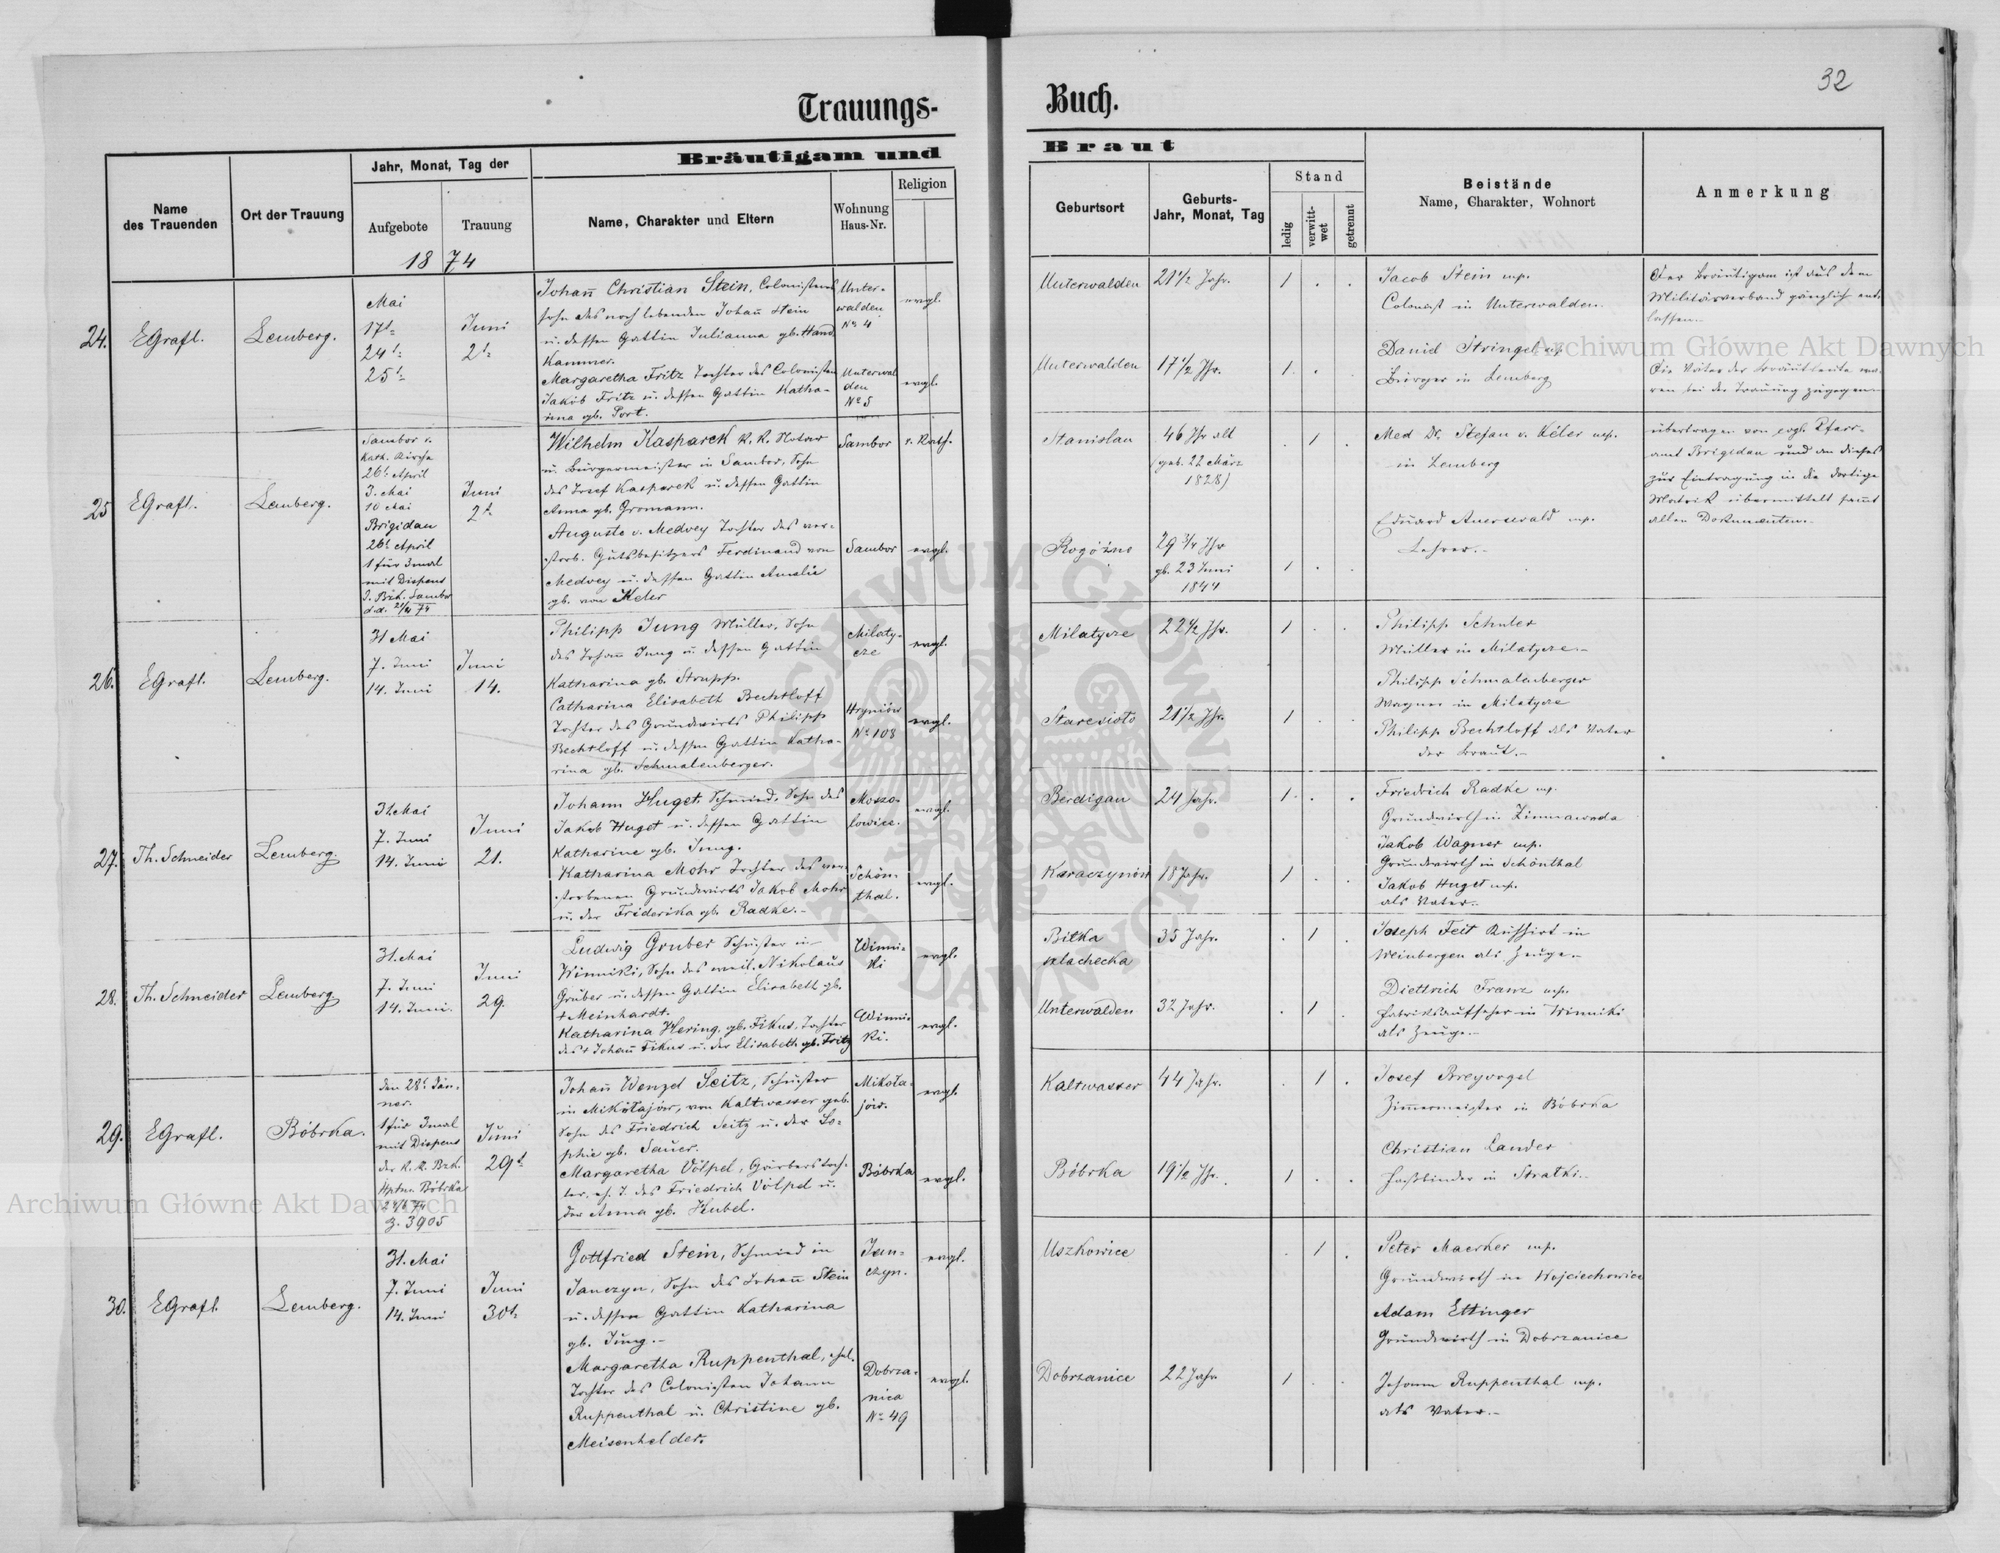 32
Trauungs-Buch.
Bräutigam und Braut
Name des Trauenden
Ort der Trauung
Jahr, Monat, Tag der
Aufgebote
Trauung
Name, Charakter und Eltern
Wohnung Haus-Nr.
Religion
Geburtsort
Geburts-Jahr, Monat, Tag
Stand
ledig
verwittwet
getrennt
Beistände
Name, Charakter, Wohnort
Anmerkung
1874
24.
EGrafl.
Lemberg.
Mai
17t
24t
25t
Juni
2t
Johañ Christian Stein, Colonistens
Sohn des noch lebenden Johañ Stein
u. dessen Gattin Julianna gb. Hand
Kammer.
Unter-
walden
No 4
evgl.
Unterwalden
21 1/2 Jahr.
1
Jacob Stein mp.
Colonist in Unterwalden
Der Bräutigam ist aus dem
Militärverband gänzlich ent-
lassen.
Margaretha Fritz Tochter des Colonisten
Jakob Fritz u. dessen Gattin Katha-
rina gb. Port.
Unterwal
den
No 5
evgl.
Unterwalden
17 1/2 Jhr.
1
Daniel Stringel mp
Bürger in Lemberg
Die Väter der Brautleute wa-
ren bei der Trauung zugegen
25
EGrafl.
Lemberg.
Sambor r.
Kath. Kirche
26t April
3. Mai
10 Mai
Brigidau
26t April
1 für 3mal
mit Dispens
Juni
2t
Wilhelm Kasparek K. K. Notar
u. Bürgermeister in Sambor, Sohn
des Josef Kasparek u. dessen Gattin
Anna gb. Gromann.
Sambor
r. Kath.
Stanislau
46 Jhr alt
(geb. 22 März
1828)
1
Med Dr. Stefan v. Kéler mp.
in Lemberg
übertragen von evgl. Pfarr-
amt Brigidau und an dieses
zur Eintragung in die dortige
Matrik übermittelt sammt
allen Dokumenten.
Auguste v. Medvey Tochter des ver-
storb. Gutsbesitzers Ferdinand von
Medvey u. dessen Gattin Amalie
gb. von Keler
Sambor
evgl.
Rogóźno
29 3/4 Jhr
gb. 23 Juni
1844
1
Eduard Auerswald mp.
Lehrer.
26.
EGrafl.
Lemberg.
31 Mai
7. Juni
14. Juni
Juni
14.
Philipp Jung Müller, Sohn
des Johañ Jung u. dessen Gattin
Katharina gb. Strupp.
Milaty-
cze
evgl.
Milatycze
22 1/2 Jhr.
1
Philipp Schuler
Müller in Milatycze.
Philipp Schmalenberger
Wagner in Milatycze
Catharina Elisabeth Bechtloff
Tochter des Grundwirts Philipp
Bechtloff u. dessen Gattin Katha-
rina gb. Schmalenberger.
Hryniów
No 108
evgl.
Staresioło
21 1/2 Jhr.
1
Philipp Bechtloff als Vater
der Braut.
27.
Th. Schneider
Lemberg.
31. Mai
7. Juni
14. Juni
Juni
21.
Johann Huget, Schmied, Sohn des
Jakob Huget u. dessen Gattin
Katharine gb. Jung.
evgl.
Berdigau
24 Jahr.
1
Friedrich Radke mp.
Grundwirth in Zimnawoda
Jakob Wagner mp.
Grundwirth in Schönthal
Katharina Mohr Tochter des ver-
storbenen Grundwirts Jakob Mohr
u. der Friderika gb. Radke.
Schön
thal.
evgl.
18 Jahr.
1
Jakob Huget mp.
als Vater.
28.
Th. Schneider
Lemberg
31. Mai
7. Juni
14. Juni.
Juni
29.
Ludwig Gruber Schuster in
Winniki, Sohn des weil. Nikolaus
Gruber u. dessen Gattin Elisabeth gb.
+ Meinhardt.
Winni-
ki
evgl.
Bilka
szlachecka
35 Jahr.
1
Joseph Feit
Weinbergen als Zeuge.
Katharina Hering, gb. Fikus, Tochter
des + Johañ Fikus u. der Elisabeth gb. Fritz
Winni-
ki.
evgl.
Unterwalden
32 Jahr.
1
Diettrich Franz mp.
Fabriksaufseher in Winniki
als Zeuge.
29.
EGrafl.
Bóbrka.
den 28t Jän-
ner.
1 für 3mal
mit Dispens
der K. K. Bzk.
Hptm. Bóbrka
Z. 3905
Juni
29t
Johañ Wenzel Seitz, Schuster
in Mikołajów, von Kaltwasser geb.
Sohn des Friedrich Seitz u. der So-
phie gb. Sauer.
Mikoła-
jów.
evgl.
Kaltwasser
44 Jahr.
1
Josef Breyvogel
Zimmermeister in Bóbrka
Margaretha Völpel, Gärberstoch-
ter, eh. T. des Friedrich Völpel u.
der Anna gb. Hubel.
Bóbrka
evgl.
Bóbrka
19 1/2 Jhr.
1
Christian Lander
Faßbinder in Stratki.
30.
EGrafl.
Lemberg.
31. Mai
7. Juni
14. Juni
Juni
30t
Gottfried Stein, Schmied in
Janczyn, Sohn des Johañ Stein
u. dessen Gattin Katharina
gb. Jung.
Jan-
czyn.
evgl.
Uszkowice
1
Peter Maerker mp.
Grundwirth in Wojciechowice
Adam Ettinger
Grundwirth in Dobrzanice
Margaretha Ruppenthal, ehel.
Tochter des Colonisten Johann
Ruppenthal u. Christine gb.
Meisenhelder.
Dobrza-
nica
No 49
evgl.
Dobrzanice
22 Jahr
1
Johann Ruppenthal mp.
als Vater.
Archiwum Główne Akt Dawnych
Archiwum Główne Akt Dawnych
ARCHIWUM GŁÓWNE AKT DAWNYCH